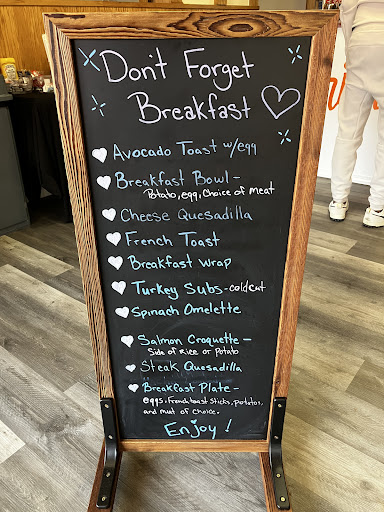 Don't Forget
Breakfast
Avocado Toast w/egg
Breakfast Bowl -
Potato, egg, Choice of meat
Cheese Quesadilla
French Toast
Breakfast Wrap
Turkey Subs - cold cut
Spinach Omelette
Salmon Croquette -
Side of Rice or Potato
Steak Quesadilla
Breakfast Plate -
eggs, French toast sticks, potatos,
and meat of choice.
Enjoy!